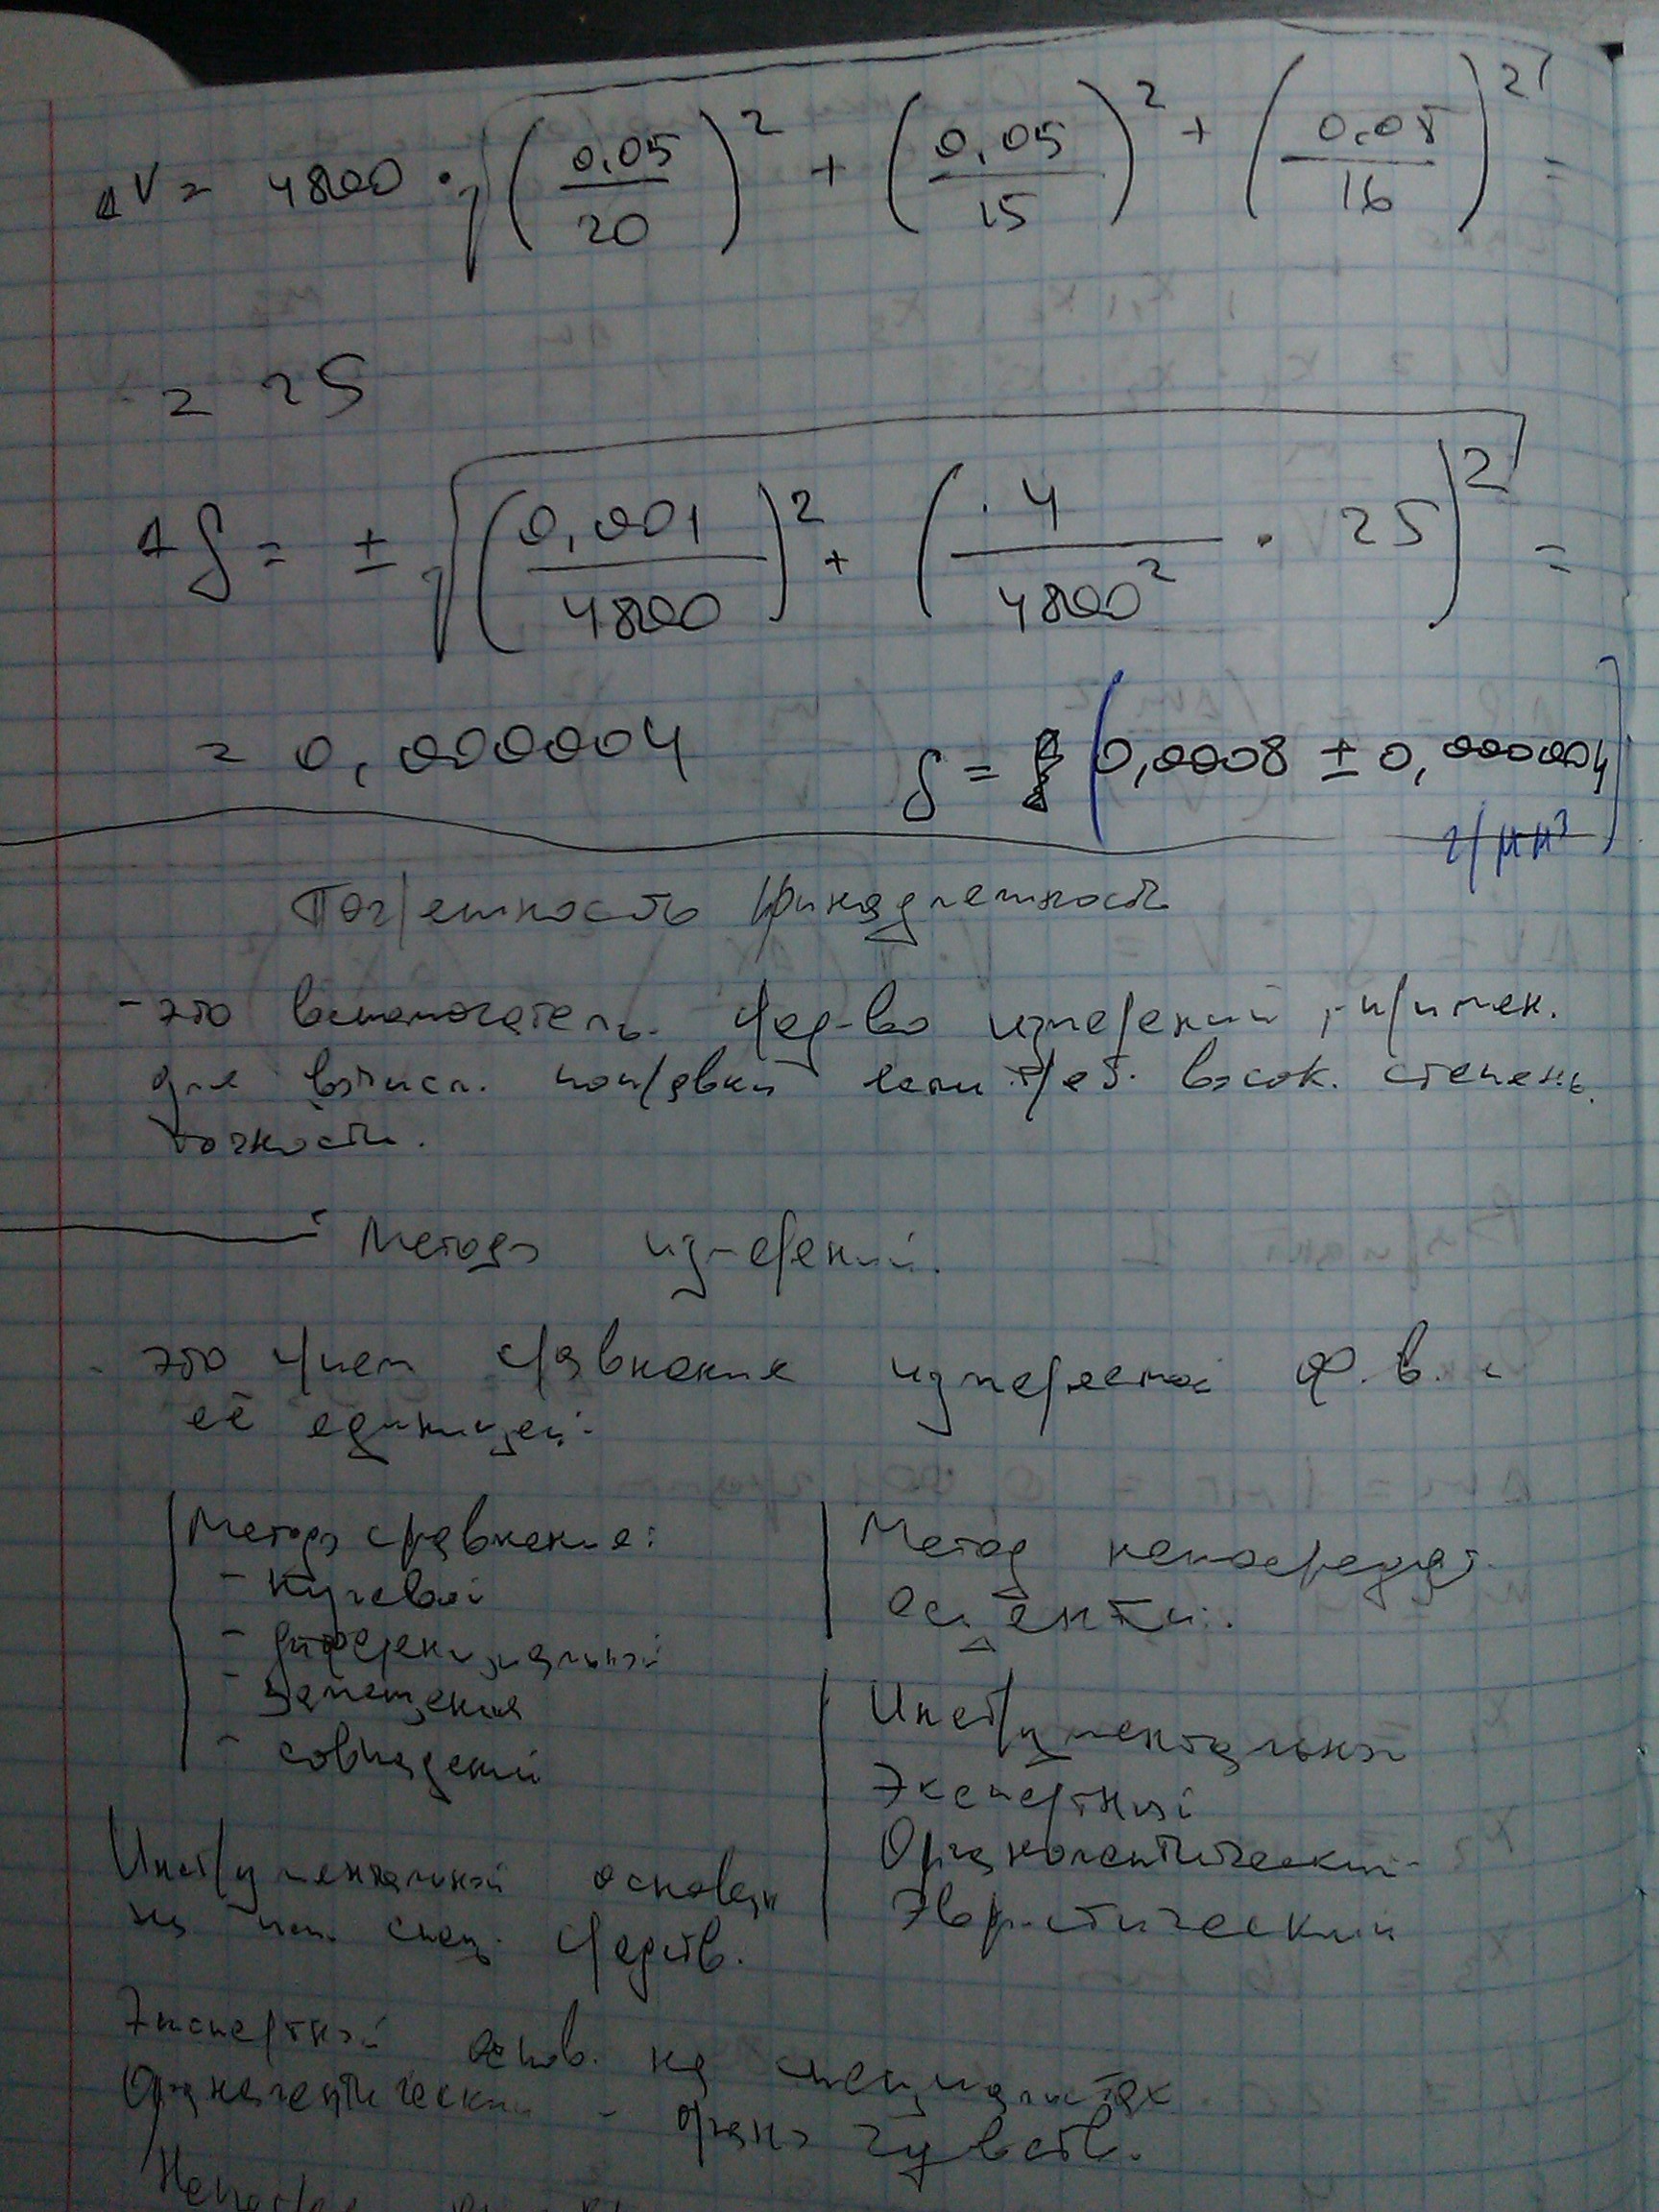 ΔV = 4800 · √((0,05/20)² + (0,05/15)² + (0,05/16)²) =
= 25
Δρ = ± √((0,001/4800)² + (4/4800² · 25)²) =
= 0,000004 ρ = (0,0008 ± 0,000004) г/мм³
Погрешность принадлежность
- это вспомогатель. сред-во измерений, примен.
для вычисл. поправки если треб. высок. степень
точности.
Методы измерений.
- это прием сравнения измеряемой ф.в. с
её единицей.
Методы сравнения:
- нулевой
- диференциальный
- замещения
- совпадений
Метод непосредст.
оценки.
Инструментальный
Экспертный
Органолептический
Эвристический
Инструментальный основан
на исп. спец. средств.
Экспертный основ. на специалистах
Органолептический - органы чувств.